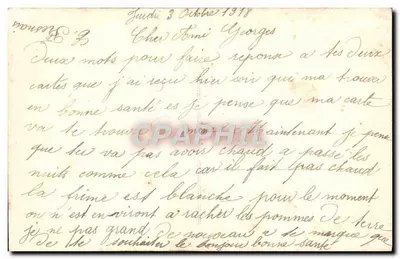 Jeudi 3 Octobre 1918
Cher Ami Georges
deux mots pour faire reponse a tes deux
cartes que j'ai reçu hier soir qui ma trouva
en bonne santé es je pense que ma carte
va te trouver maintenant je pense
que tu va pas avoir chaud a passé les
nuits comme cela car il fait pas chaud
la frime est blanche pour le moment
on n est en viront a racher les pommes de terre
je ne pas grand de nouveau a te marquer que
de te souhaiter le bonjour bonne santé
CPAPHIL